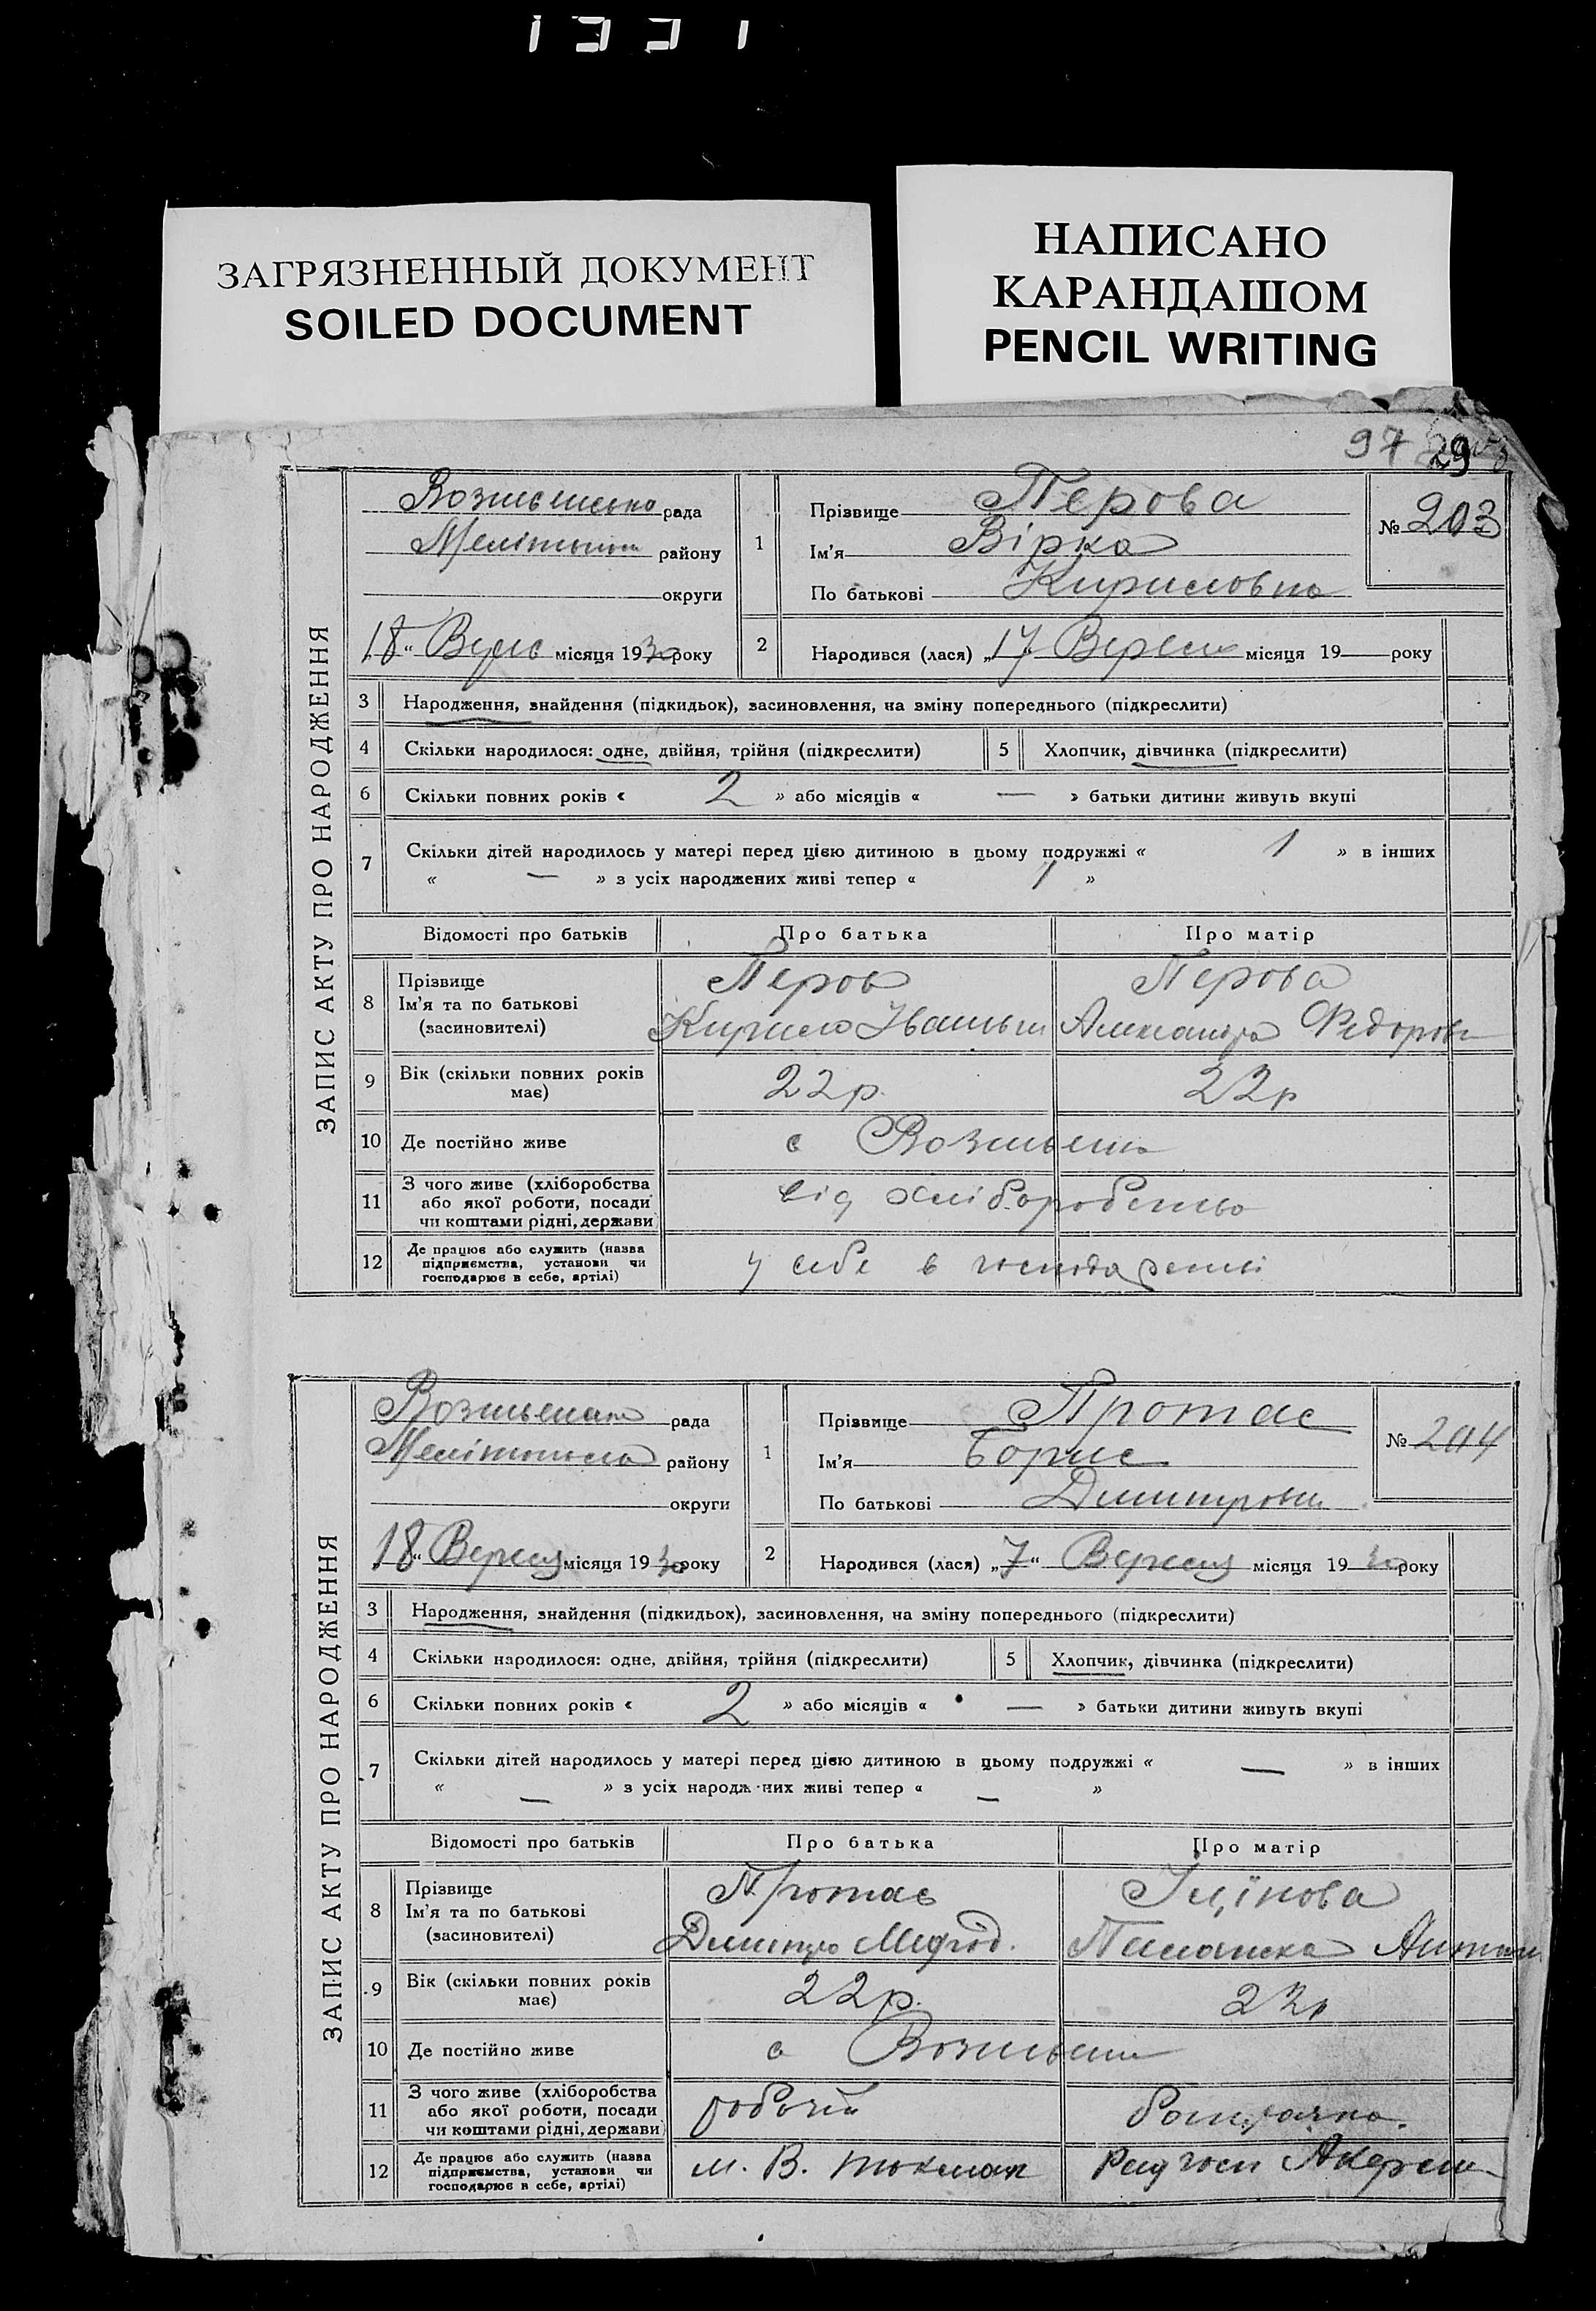 ЗАГРЯЗНЕННЫЙ ДОКУМЕНТ
SOILED DOCUMENT
НАПИСАНО
КАРАНДАШОМ
PENCIL WRITING
97 29
ЗАПИС АКТУ ПРО НАРОДЖЕННЯ
рада
району
округи
„18“ Верес місяця 1930 року
1 Прізвище Перова
Ім’я Вірка
По батькові Кириловна
№ 203
2 Народився (лася) „17“ Верес місяця 19 — року
3 Народження, знайдення (підкидьок), засиновлення, на зміну попереднього (підкреслити)
4 Скільки народилося: одне, двійня, трійня (підкреслити) 5 Хлопчик, дівчинка (підкреслити)
6 Скільки повних років « 2 » або місяців « — » батьки дитини живуть вкупі
7 Скільки дітей народилось у матері перед цією дитиною в цьому подружжі « 1 » в інших
« — » з усіх народжених живі тепер « 1 »
Відомості про батьків Про батька Про матір
8 Прізвище Перов Перова
Ім’я та по батькові
(засиновителі) Кирило Александра Федоров
9 Вік (скільки повних років має) 22р. 22р
10 Де постійно живе с
11 З чого живе (хліборобства
або якої роботи, посади
чи коштами рідні, держави від
12 Де працює або служить (назва
підприємства, установи чи
господарює в себе, артілі) у себе в
ЗАПИС АКТУ ПРО НАРОДЖЕННЯ
рада
району
округи
„18“ Вересня місяця 1930 року
1 Прізвище Протас
Ім’я Борис
По батькові
№ 204
2 Народився (лася) „7“ Вересня місяця 1930 року
3 Народження, знайдення (підкидьок), засиновлення, на зміну попереднього (підкреслити)
4 Скільки народилося: одне, двійня, трійня (підкреслити) 5 Хлопчик, дівчинка (підкреслити)
6 Скільки повних років « 2 » або місяців « — » батьки дитини живуть вкупі
7 Скільки дітей народилось у матері перед цією дитиною в цьому подружжі « — » в інших
« — » з усіх народж них живі тепер « — »
Відомості про батьків Про батька Про матір
8 Прізвище Протас
Ім’я та по батькові
(засиновителі)
9 Вік (скільки повних років має) 22р. 22р
10 Де постійно живе с
11 З чого живе (хліборобства
або якої роботи, посади
чи коштами рідні, держави робочій
12 Де працює або служить (назва
підприємства, установи чи
господарює в себе, артілі) м. В. Токмак